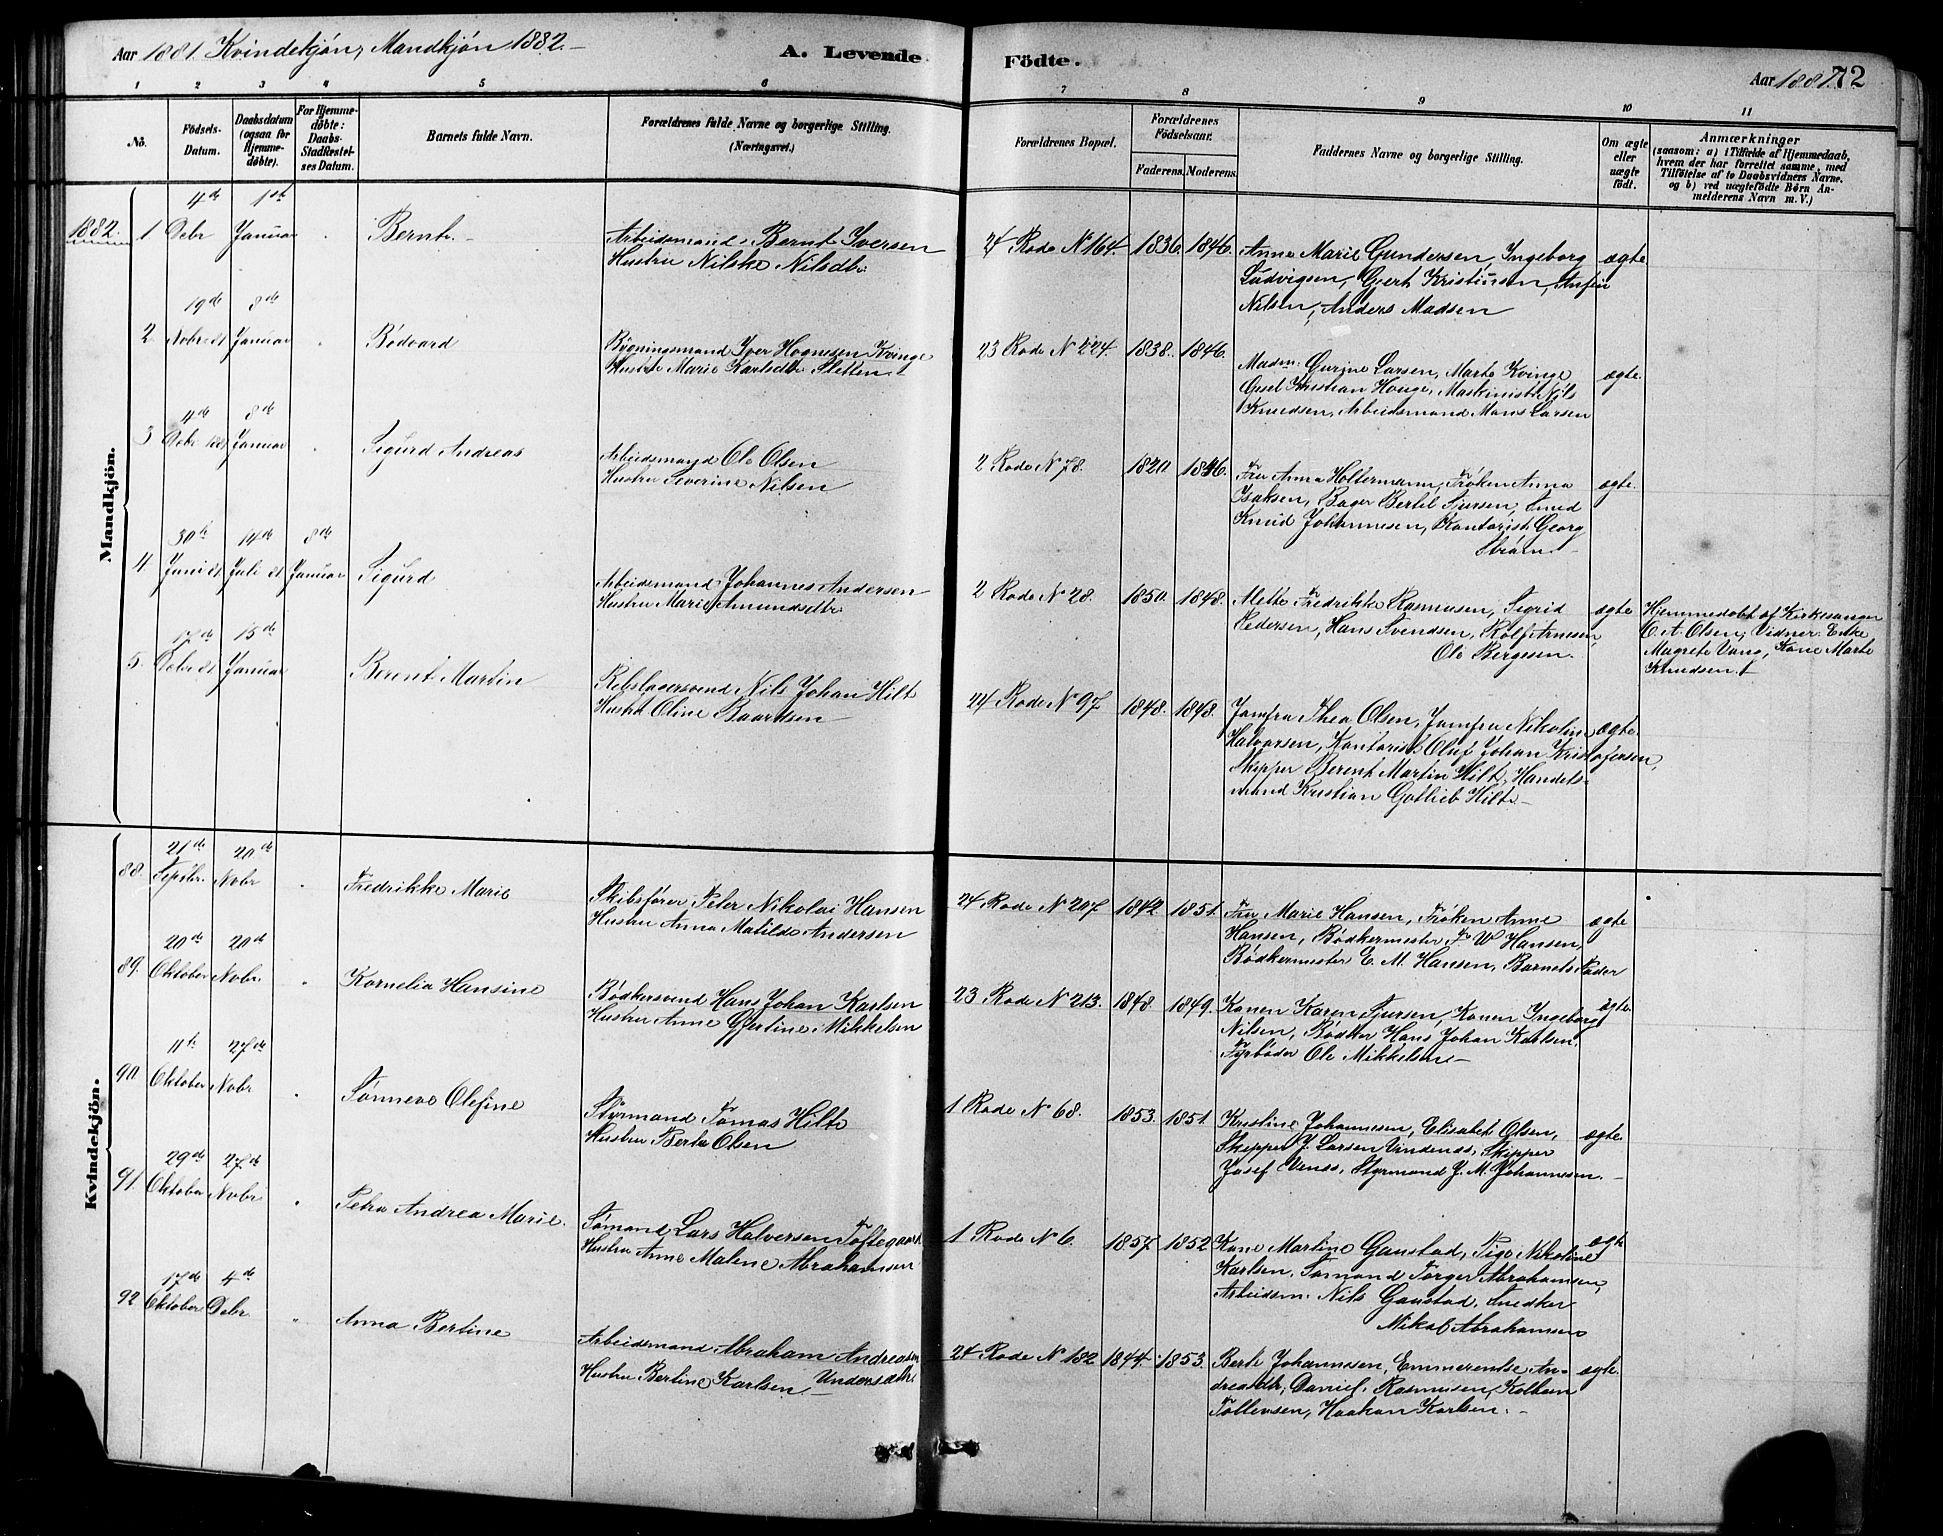 Aar 1881 Kvindekjøn, Mandkjøn 1882.
A. Levende Födte.
Aar 1881. 72
1 2 3 4 5 6 7 8 9 10 11
No.
Födsels-Datum.
Daabsdatum (ogsaa for Hjemme-döbte).
For Hjemme-döbte: Daabs Stadfæstelses Datum.
Barnets fulde Navn.
Forældrenes fulde Navne og borgerlige Stilling. (Næringsvei.)
Forældrenes Bopæl.
Forældrenes Födselsaar.
Faderens. Moderens.
Faddernes Navne og borgerlige Stilling.
Om ægte eller uægte födt.
Anmærkninger
(saasom: a) i Tilfælde af Hjemmedaab, hvem der har forrettet samme, med Tilföielse af to Daabsvidners Navne. og b) ved uægtefödte Börn Anmelderens Navn m. V.)
Mandkjön.
1882.
1 4de Debr 1ste Januar Bernt.
Arbeidsmand Bernt Iversen
Hustru Nilske Nilsdtr
24 Rode No 164. 1836. 1846.
Anne Marie Gundersen, Ingeborg
Ludvigsen, Gert Kristiansen, Anfin
Nilsen, Anders Madsen
ægte
2 19de Nobr 81 8de Januar Bødvard
Bygningsmand Iver Hognesen Kvinge
Hustru Marie Karlsdtr Sletten
23 Rode No 224. 1838. 1846.
Madm. Gurine Larsen, Marte Kvinge
Gesel Kristian Houge, Maskinist Nils
Knudsen, Arbeidsmand Mons Larsen
ægte.
3 4de Debr 1881 8de Januar Sigurd Andreas
Arbeidsmand Ole Olsen
Hustru Severine Nilsen
2 Rode No 78. 1820. 1846.
Fru Anna Holtermann, Frøken Anna
Isaksen, Bager Bertel Sjursen, Smed
Knud Johannesen, Kontorist Georg
Strøm
ægte.
4 30te Juni 81 14de Juli 81 8de Januar Sigurd
Arbeidsmand Johannes Andersen
Hustru Marie Amundsdtr
2 Rode No 28. 1850. 1848.
Mette Fredrikke Rasmusen, Sigrid
Pedersen, Hans Svendsen, Rolf Arnesen,
Ole Bergesen.
ægte
Hjemmedøbt af Kirkesanger
C. A. Olsen, Vidner: Enke
Magrete Vang, Kone Marte
Knudsen
5. 17de Debr 81 15de Januar Berent Martin
Rebslagersvend Nils Johan Hilt
Hustru Oline Baardsen
24 Rode No 97 1848. 1848.
Jomfru Thea Olsen, Jomfru Nikoline
Halvorsen, Kontorist Oluf Johan Kristofersen,
Skipper Berent Martin Hilt, Handels-
mand Kristian Gotlieb Hilt
ægte.
Kvindekjön.
88. 21de Septbr. 20de Nobr Fredrikke Marie
Skibsfører Peter Nikolai Hansen
Hustru Anna Matilde Andersen
24 Rode No 207 1842 1851.
Fru Marie Hansen, Frøken Anne
Hansen, Bødkermester F. W. Hansen,
Bødkermester E. M. Hansen, Barnets Fader
ægte
89. 20de Oktober 20de Nobr. Kornelia Hansine
Bødkersvend Hans Johan Karlsen
Hustru Anne Gjertine Mikkelsen
23 Rode No 213. 1848. 1849.
Konen Karen Sjursen, Konen Ingeborg
Nilsen, Bødker Hans Johan Karlsen.
Fyrbøder Ole Mikkelsen
ægte.
90. 11te Oktober 27de Nobr Sønneve Olefine
Styrmand Tomas Hilt
Hustru Berta Olsen
1 Rode No 68. 1853. 1851.
Kristine Johannesen, Elisabet Olsen,
Skipper J. Larsen Vindenæs, Skipper
Josef Venss, Styrmand J. M. Johannesen.
ægte
91. 29de Oktober 27de Nobr Petra Andrea Marie.
Sømand Lars Halversen Toftegaard
Hustru Anne Malene Abrahamsen
1 Rode No 6. 1857. 1852
Kone Martine Ganstad, Pige Nikoline
Karlsen, Sømand Torger Abrahamsen,
Arbeidsm. Nils Ganstad, Snedker
Mikal Abrahamsen
ægte
92 17de Oktober 4de Debr Anna Bertine
Arbeidsmand Abraham Andreasen
Hustru Bertine Karlsen Undersæth
24 Rode No 182 1844. 1853.
Berte Johannesen, Emmerentse An-
dreasdtr, Daniel Rasmusen, Kolbein
Tollevsen, Haakon Karlsen.
ægte.